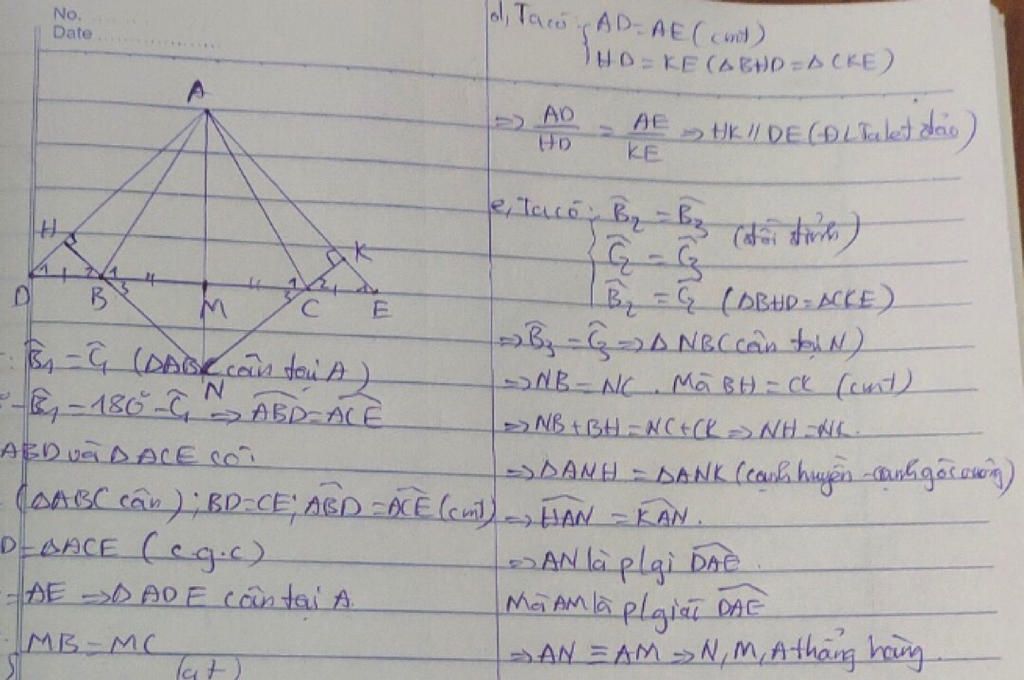 No.
Date
A
H
K
D
B
M
C
E
N
: B̂₁ = Ĉ₁ (ΔABC cân tại A)
- B̂₁ = 180° - Ĉ₁ => ABD̂ = ACÊ
ABD và ΔACE có:
(ΔABC cân); BD = CE; ABD̂ = ACÊ (cmt)
D = ΔACE (c.g.c)
= AE => ΔADE cân tại A.
MB = MC
(gt)
d, Ta có: { AD = AE (cmt)
HD = KE (ΔBHD = ΔCKE)
=> AD/HD = AE/KE => HK // DE (ĐL Talet đảo)
e, Ta có: { B̂₂ = B̂₃
Ĉ₂ = Ĉ₃ (đối đỉnh)
B̂₂ = Ĉ₂ (ΔBHD = ΔCKE)
=> B̂₃ = Ĉ₃ => ΔNBC cân tại N)
=> NB = NC. Mà BH = CK (cmt)
=> NB + BH = NC + CK => NH = NK.
=> ΔANH = ΔANK (cạnh huyền - cạnh góc vuông)
=> HAN̂ = KAN̂.
=> AN là p/gi DAÊ.
Mà AM là p/giái DAÊ
=> AN ≡ AM => N, M, A thẳng hàng.